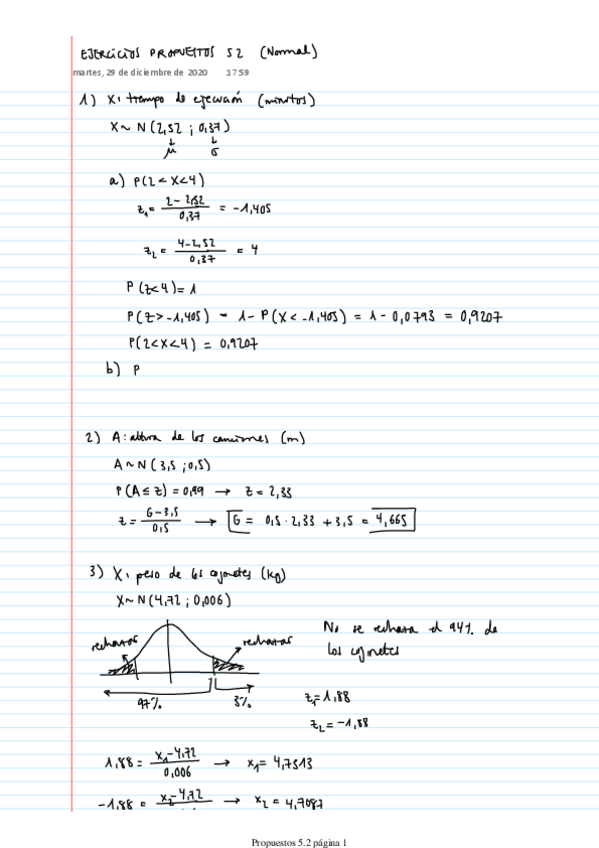 EJERCICIOS PROPUESTOS 5.2 (Normal)
martes, 29 de diciembre de 2020 17:59
1) X: tiempo de ejecución (minutos)
X ~ N(2,52 ; 0,37)
μ σ
a) P(2 < X < 4)
z₁ = (2 - 2,52)/0,37 = -1,405
z₂ = (4 - 2,52)/0,37 = 4
P(z < 4) = 1
P(z > -1,405) = 1 - P(X < -1,405) = 1 - 0,0793 = 0,9207
P(2 < X < 4) = 0,9207
b) P
2) A: altura de los camiones (m)
A ~ N(3,5 ; 0,5)
P(A ≤ z) = 0,99 → z = 2,33
z = (G - 3,5)/0,5 → G = 0,5 · 2,33 + 3,5 = 4,665
3) X: peso de los cojinetes (kg)
X ~ N(4,72 ; 0,006)
No se rechaza el 94% de
los cojinetes
rechazar rechazar
97% 3%
z₁ = 1,88
z₂ = -1,88
1,88 = (x₁ - 4,72)/0,006 → x₁ = 4,7313
-1,88 = x₂ - 4,72 → x₂ = 4,7087
Propuestos 5.2 página 1